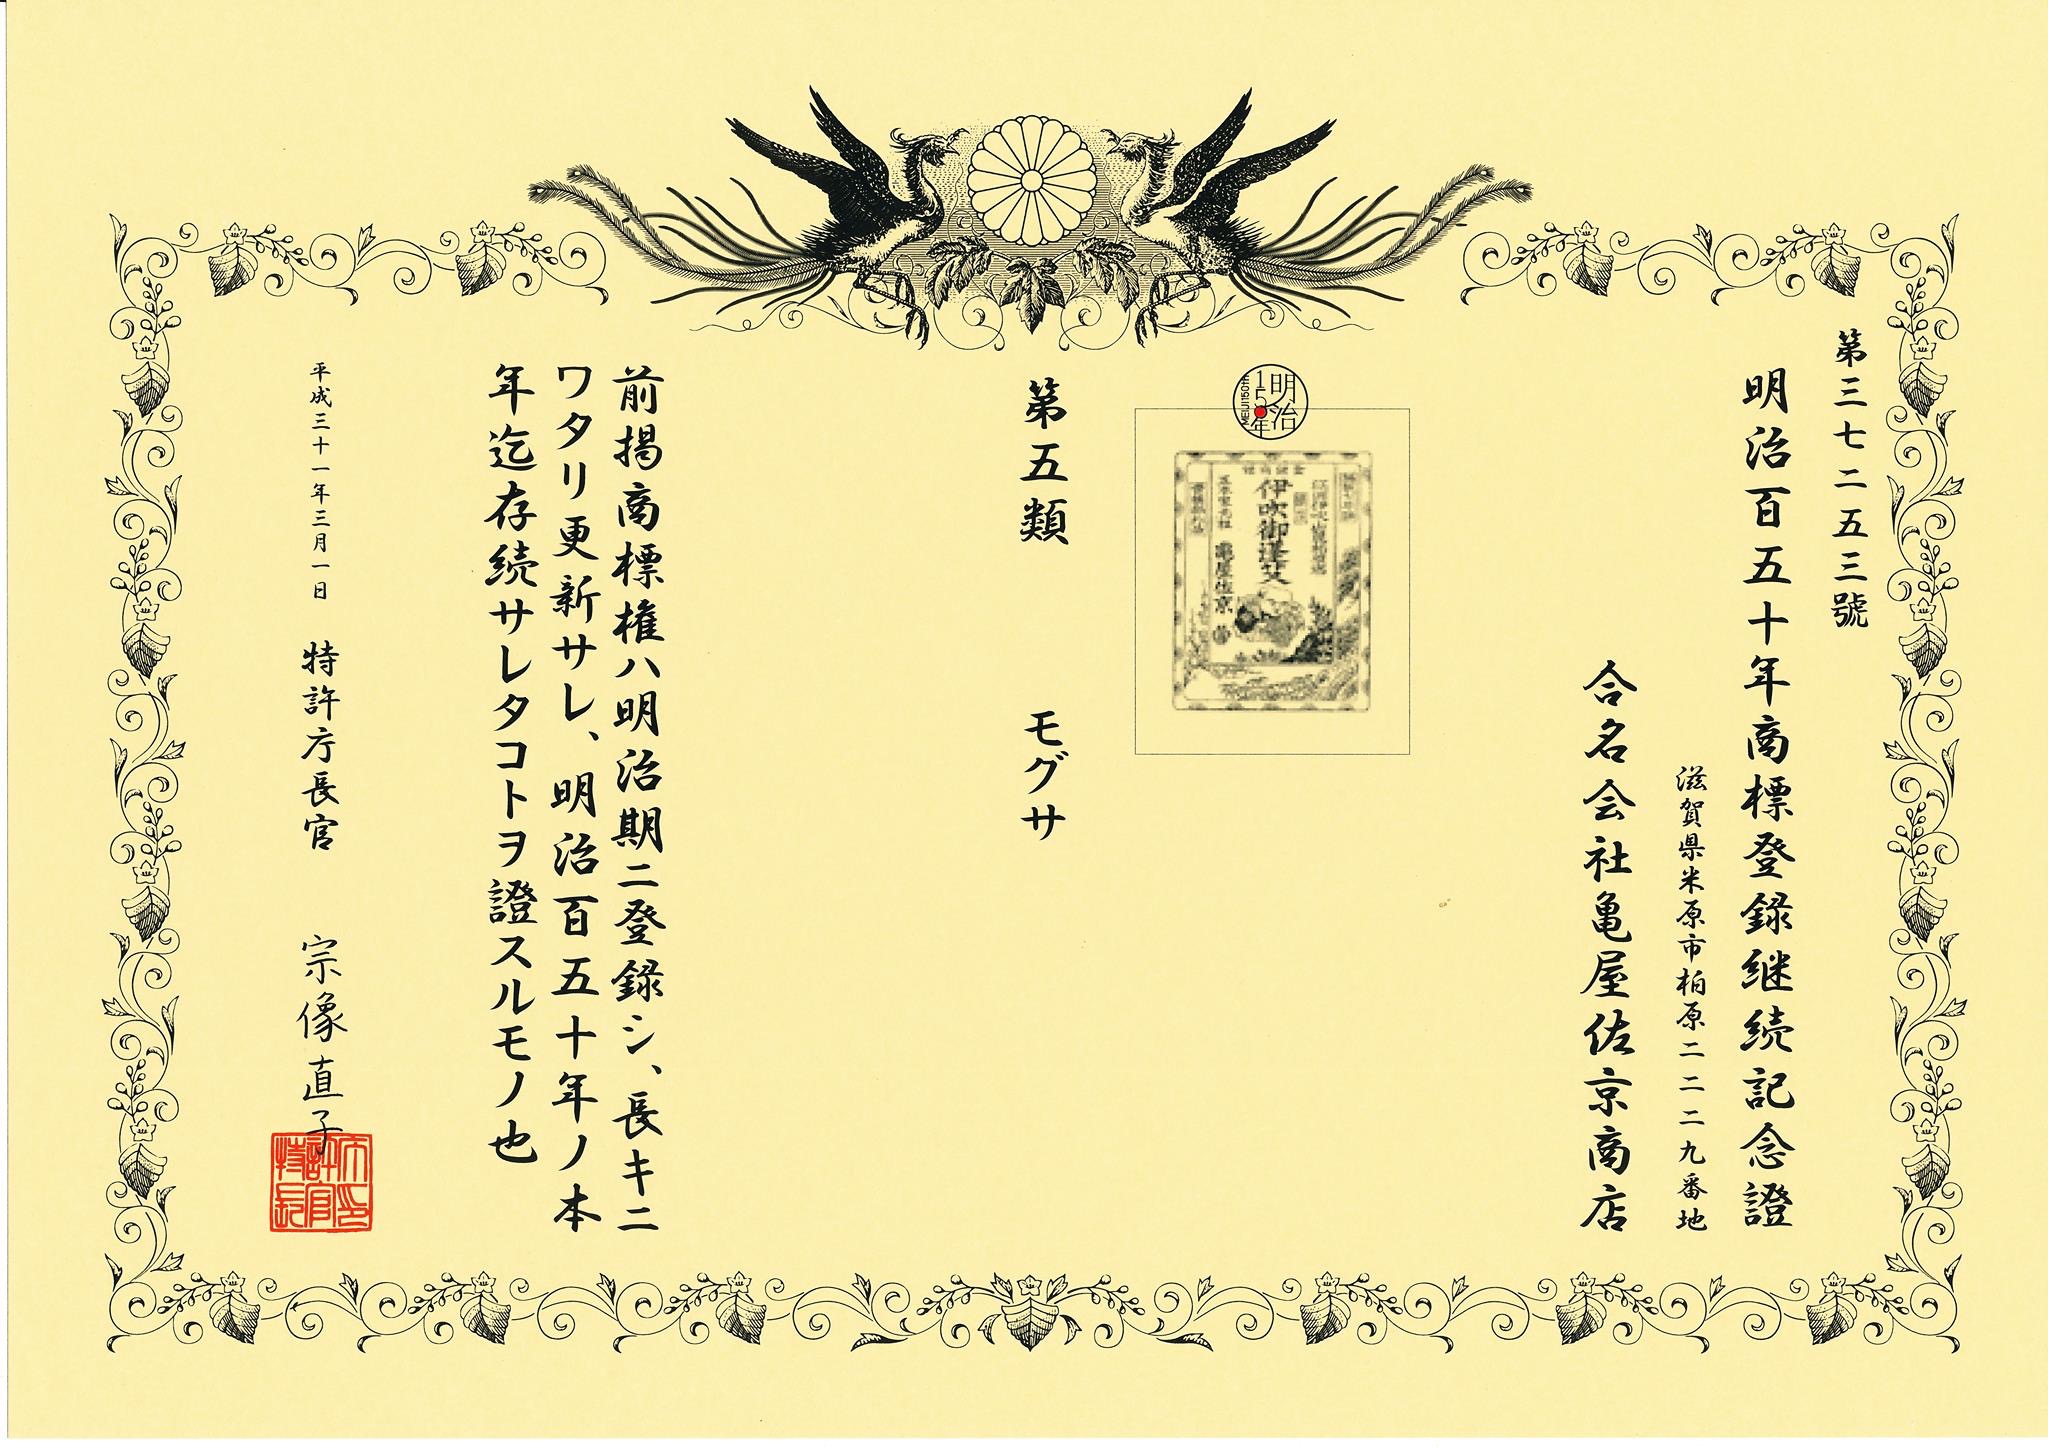 第三七二五三號
明治百五十年商標登録継続記念證
滋賀県米原市柏原二二二九番地
合名会社亀屋佐京商店
明治
150年
MEIJI150th
伊吹御蓬艾
亀屋佐京
第五類 モグサ
前掲商標権ハ明治期ニ登録シ、長キニ
ワタリ更新サレ、明治百五十年ノ本
年迄存続サレタコトヲ證スルモノ也
平成三十一年三月一日 特許庁長官 宗像直子
特許庁長官之印